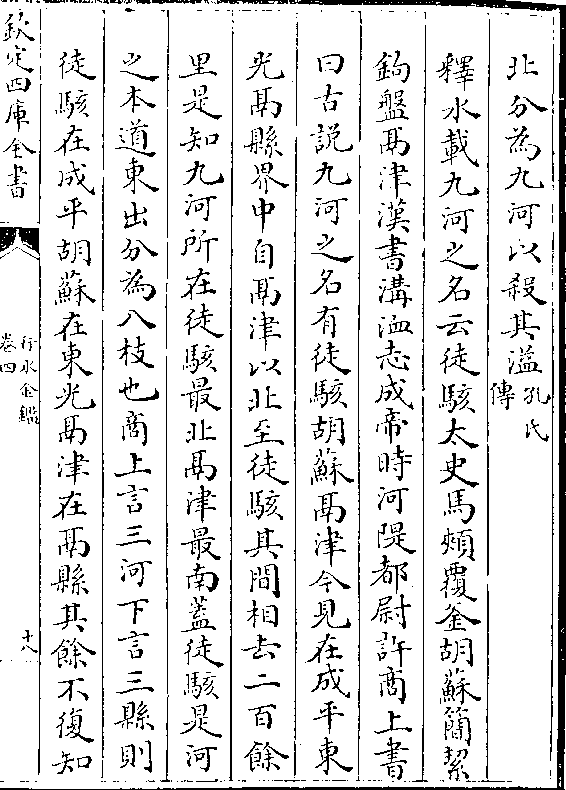 北分為九河以殺其溢孔氏傳
釋水載九河之名云徒駭太史馬頰覆釜胡蘇簡絜
鈎盤鬲津漢書溝洫志成帝時河隄都尉許商上書
曰古說九河之名有徒駭胡蘇鬲津今見在成平東
光鬲縣界中自鬲津以北至徒駭其間相去二百餘
里是知九河所在徒駭最北鬲津最南蓋徒駭是河
之本道東出分為八枝也商上言三河下言三縣則
徒駭在成平胡蘇在東光鬲津在鬲縣其餘不復知
欽定四庫全書
行水金鑑
卷四
十八